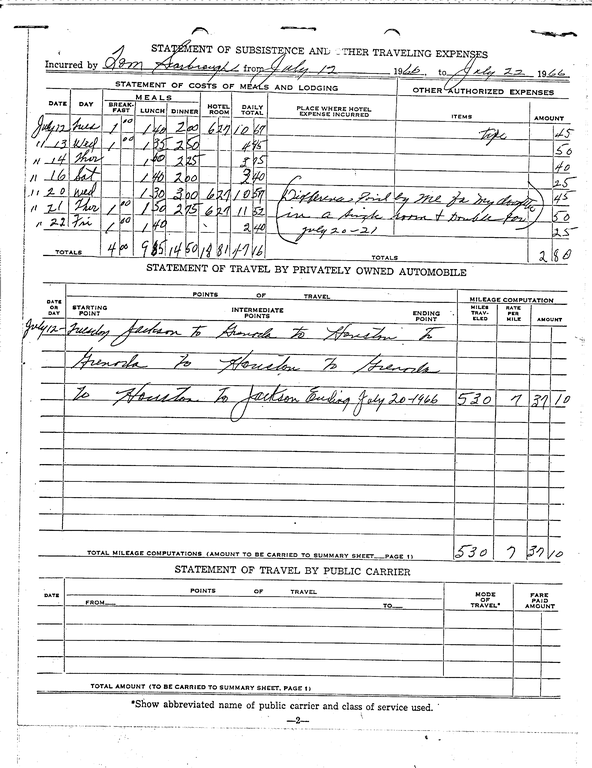 STATEMENT OF SUBSISTENCE AND OTHER TRAVELING EXPENSES
Incurred by Tom Scarbrough from July 12 1966 to July 22 1966
STATEMENT OF COSTS OF MEALS AND LODGING OTHER AUTHORIZED EXPENSES
DATE DAY MEALS BREAK-FAST LUNCH DINNER HOTEL ROOM DAILY TOTAL PLACE WHERE HOTEL EXPENSE INCURRED ITEMS AMOUNT
July 12 Tues 1 00 1 40 2 00 6 27 10 67 tips 45
" 13 Wed 1 00 1 35 2 50 4 95 50
" 14 Thur 1 50 2 25 3 75 40
" 16 Sat 1 40 2 00 3 40 25
" 20 Wed 1 30 3 00 6 27 10 57 (Difference Paid by Me for my 45
" 21 Thur 1 00 1 50 2 75 6 27 11 52 in a Single room & Double for 50
" 22 Fri 1 00 1 40 2 40 July 20-21 25
TOTALS 4 00 9 85 14 50 18 81 47 16 TOTALS 2 80
STATEMENT OF TRAVEL BY PRIVATELY OWNED AUTOMOBILE
DATE OR DAY POINTS OF TRAVEL MILEAGE COMPUTATION
STARTING POINT INTERMEDIATE POINTS ENDING POINT MILES TRAV-ELED RATE PER MILE AMOUNT
July 12- Tuesday Jackson to Grenada to Houston To
Grenada to Houston To Grenada
to Houston To Jackson Ending July 20-1966 530 7 37 10
TOTAL MILEAGE COMPUTATIONS (AMOUNT TO BE CARRIED TO SUMMARY SHEET, PAGE 1) 530 7 37 10
STATEMENT OF TRAVEL BY PUBLIC CARRIER
DATE POINTS OF TRAVEL MODE OF TRAVEL* FARE PAID AMOUNT
FROM TO
TOTAL AMOUNT (TO BE CARRIED TO SUMMARY SHEET, PAGE 1)
*Show abbreviated name of public carrier and class of service used.
—2—